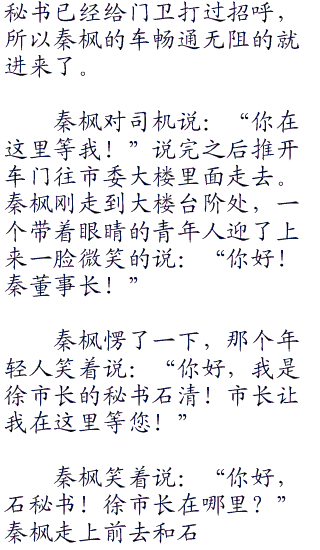 秘书已经给门卫打过招呼，
所以秦枫的车畅通无阻的就
进来了。
秦枫对司机说：“你在
这里等我！”说完之后推开
车门往市委大楼里面走去。
秦枫刚走到大楼台阶处，一
个带着眼睛的青年人迎了上
来一脸微笑的说：“你好！
秦董事长！”
秦枫愣了一下，那个年
轻人笑着说：“你好，我是
徐市长的秘书石清！市长让
我在这里等您！”
秦枫笑着说：“你好，
石秘书！徐市长在哪里？”
秦枫走上前去和石